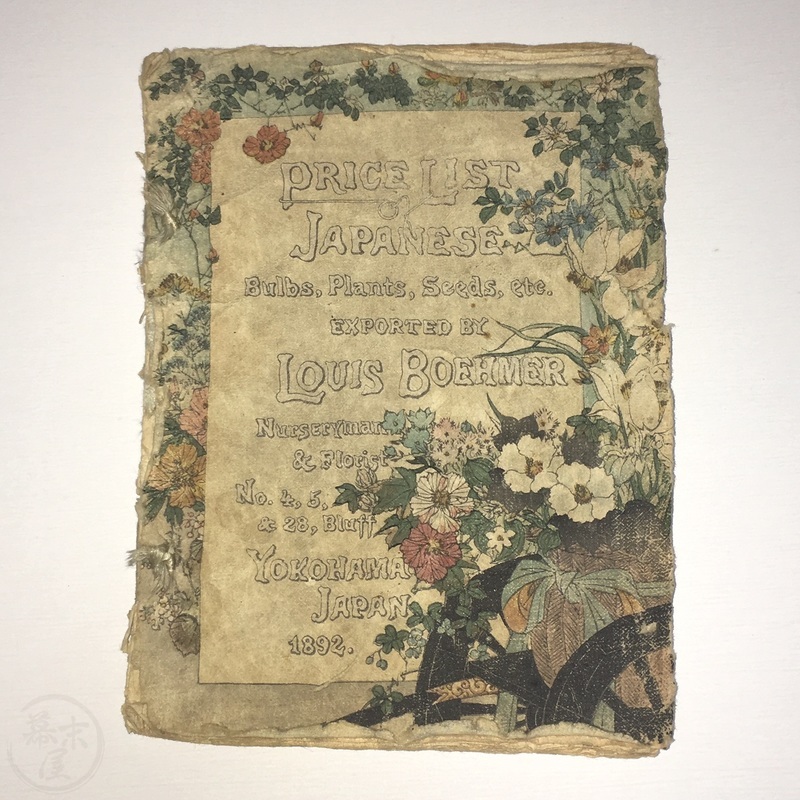 PRICE LIST
of
JAPANESE
Bulbs, Plants, Seeds, etc.
EXPORTED BY
LOUIS BOEHMER
Nurseryman
& Florist
No. 4, 5,
& 28, Bluff
YOKOHAMA
JAPAN
1892.
幕末屋